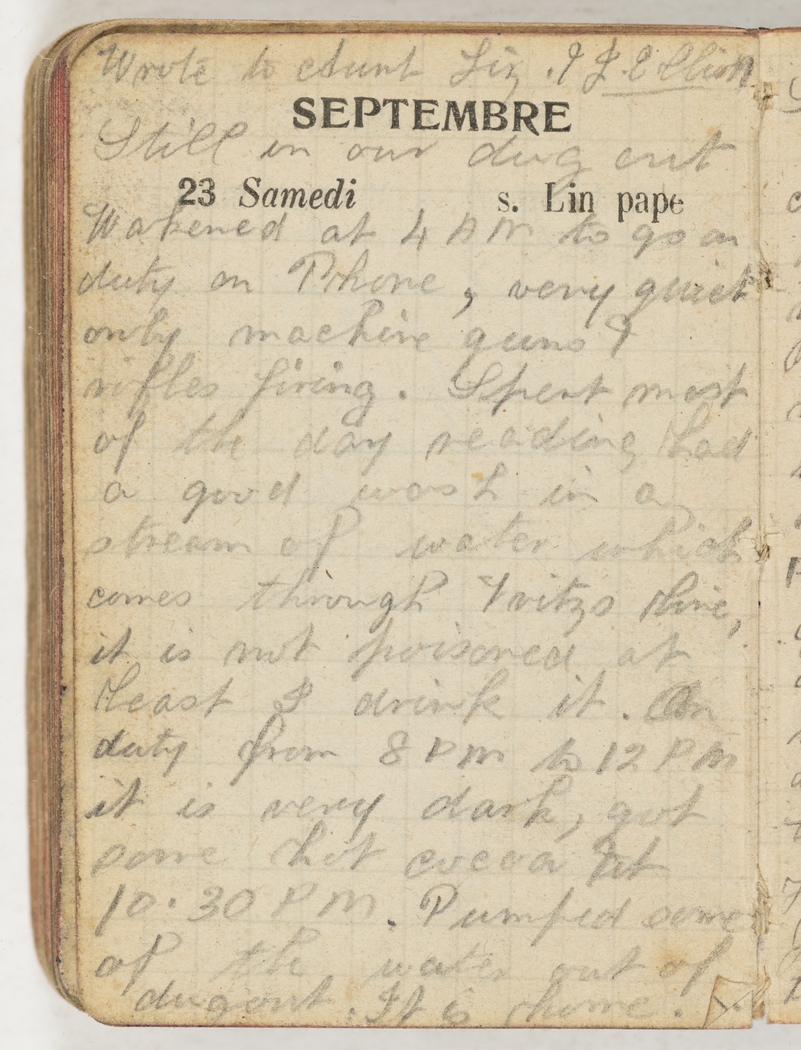 Wrote to Aunt Liz. & J. Ellion
SEPTEMBRE
Still in our dug out
23 Samedi s. Lin pape
Wakened at 4 AM to go on
duty on Phone, very quiet
only machine guns &
rifles firing. Spent most
of the day reading, had
a good wash in a
stream of water which
comes through Fritzs line,
it is not poisoned at
least I drink it. On
duty from 8 PM to 12 PM
it is very dark, got
some hot cocoa at
10.30 PM. Pumped some
of the water out of
dugout. It is